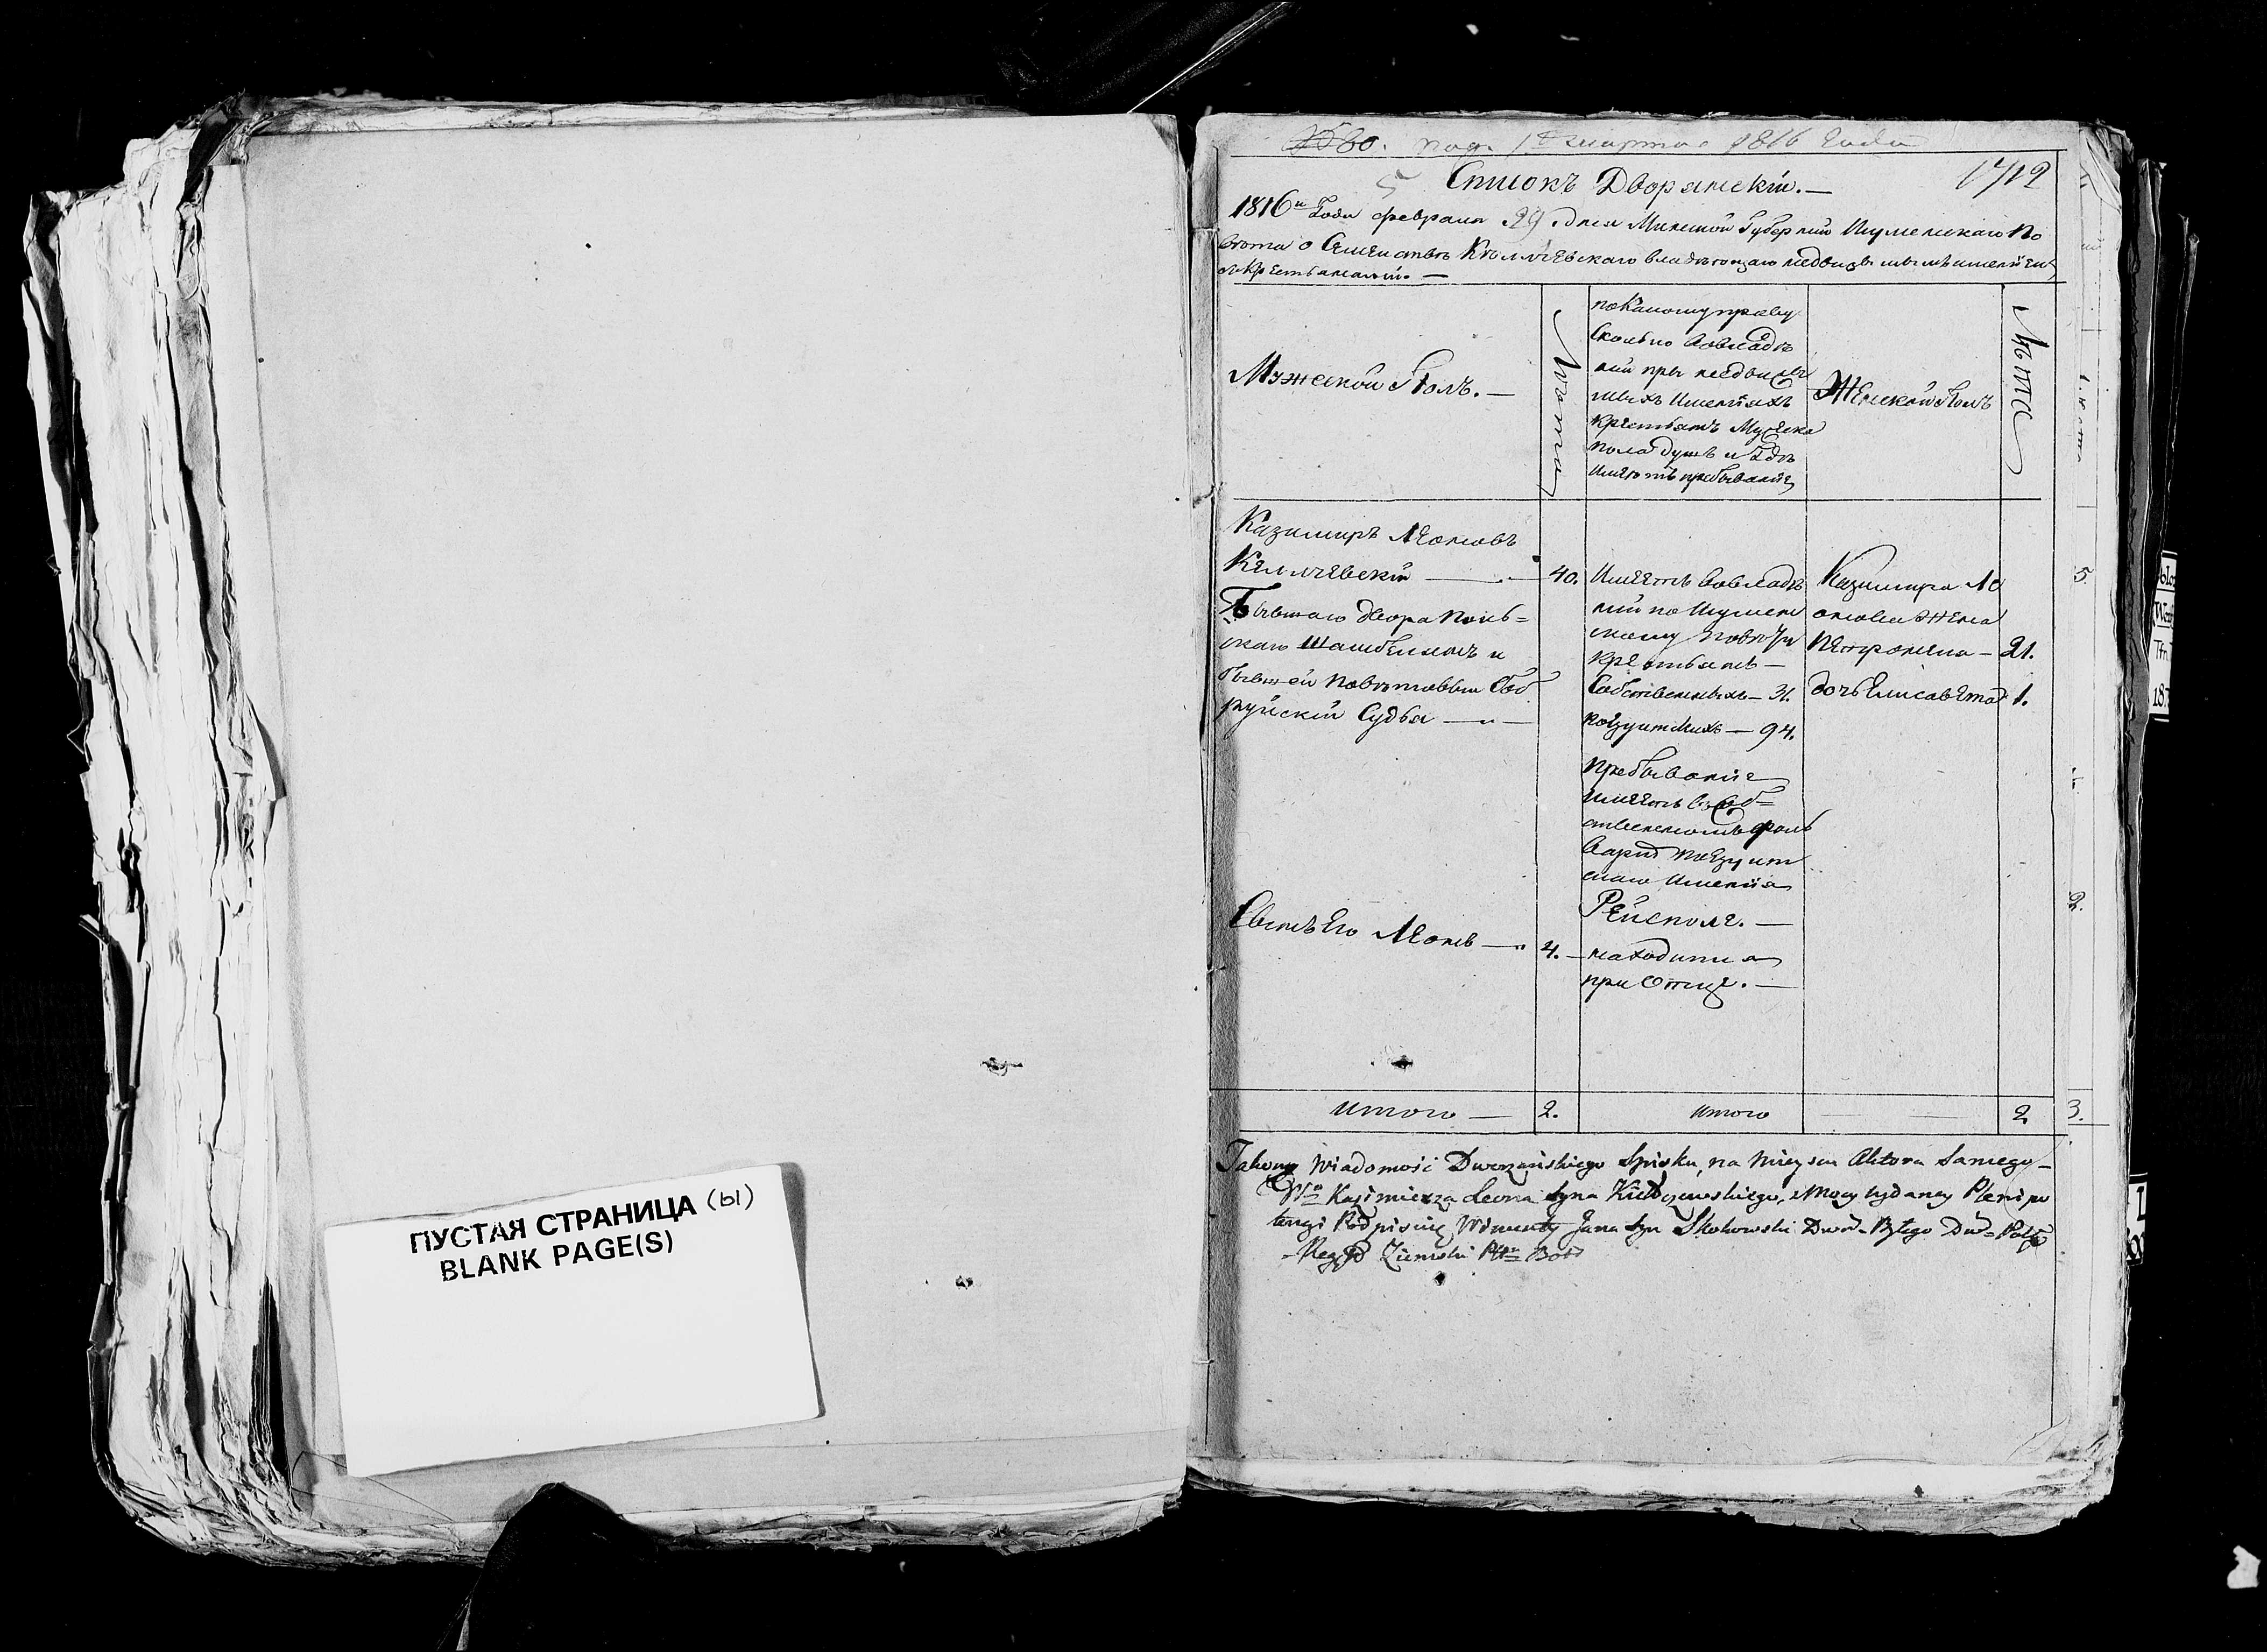 ПУСТАЯ СТРАНИЦА (ы)
BLANK PAGE(S)
60. под. 1го марта 1816 года
1712
5
Списокъ Дворянскій. —
1816го Года февраля 29 дня Минской Губерніи Игуменскаго По
вѣта о Семействѣ Кѣлчевскаго владѣющаго недвижимымъ имѣніемъ
съ крестьянами. —
Мужеской Полъ. —
Лѣта
по какому праву
сколько во владѣ
ніи при недвижи
мыхъ имѣніяхъ
крестьянъ Мужеска
пола душъ и гдѣ
имѣютъ пребываніе
Женской Полъ
Лѣта
Казимиръ Леоновъ
Келчевскій — 40.
Бывшаго двора Поль=
скаго Шамбелянъ и
бывшей повѣтовый Боб
руйскій Судья —
имѣетъ во владѣ
ніи по Игумен
скому повѣту
крестьянъ —
Собственныхъ — 31.
поезуитскихъ — 94.
Пребываніе
имѣетъ въ соб=
ственномъ фоль
варкѣ поезуит
скаго имѣнія
Рейсполе. —
Казимира Ле
онова жена
Петронела — 21.
дочь Елисавета 1.
Сынъ Его Леонъ — 4. —
находится
при Отцѣ. —
итого — 2.
итого — 2
Takową Wiadomość Dworzańskiego Spisku, na mieyscu Aktora Samego —
Kazimierza Leona Syna Kiełczewskiego, z Mocy wydaney Plenipo
tencyi Podpisuię Wincenty Jana Syn Skokowski
Ziemski
5.
2.
3.